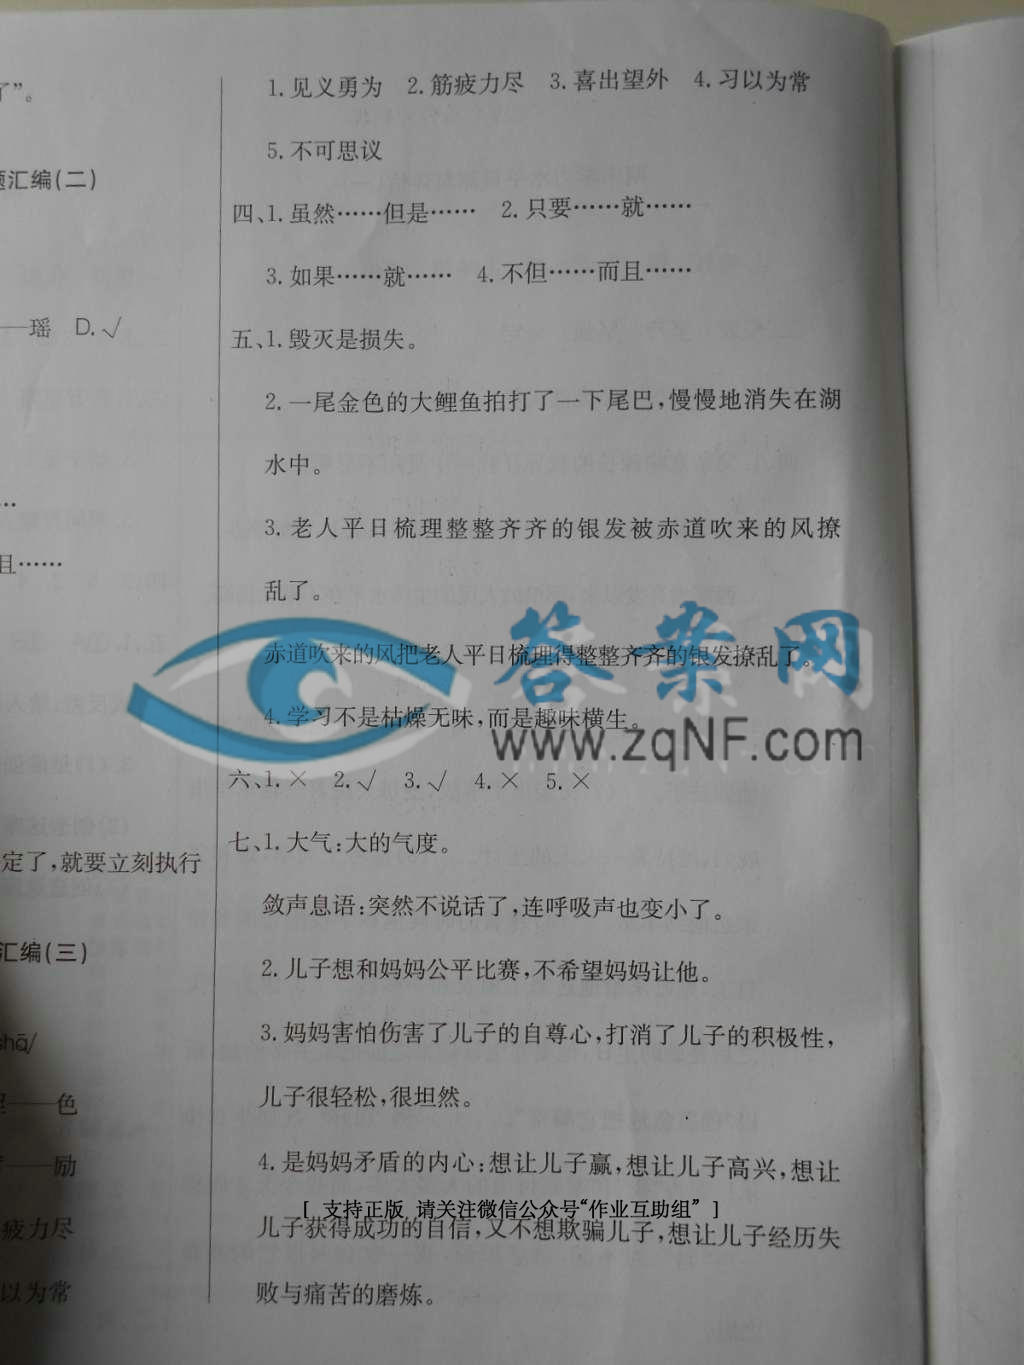 了”。
题汇编(二)
——瑶 D.√
…
且……
定了，就要立刻执行
汇编(三)
shā/
——色
——励
疲力尽
以为常
1.见义勇为 2.筋疲力尽 3.喜出望外 4.习以为常
5.不可思议
四、1.虽然……但是…… 2.只要……就……
3.如果……就…… 4.不但……而且……
五、1.毁灭是损失。
2.一尾金色的大鲤鱼拍打了一下尾巴，慢慢地消失在湖
水中。
3.老人平日梳理整整齐齐的银发被赤道吹来的风撩
乱了。
赤道吹来的风把老人平日梳理得整整齐齐的银发撩乱了。
4.学习不是枯燥无味，而是趣味横生。
答案网
www.zqNF.com
六、1.× 2.√ 3.√ 4.× 5.×
七、1.大气：大的气度。
敛声息语：突然不说话了，连呼吸声也变小了。
2.儿子想和妈妈公平比赛，不希望妈妈让他。
3.妈妈害怕伤害了儿子的自尊心，打消了儿子的积极性，
儿子很轻松，很坦然。
4.是妈妈矛盾的内心：想让儿子赢，想让儿子高兴，想让
[ 支持正版 请关注微信公众号“作业互助组” ]
儿子获得成功的自信，又不想欺骗儿子，想让儿子经历失
败与痛苦的磨炼。